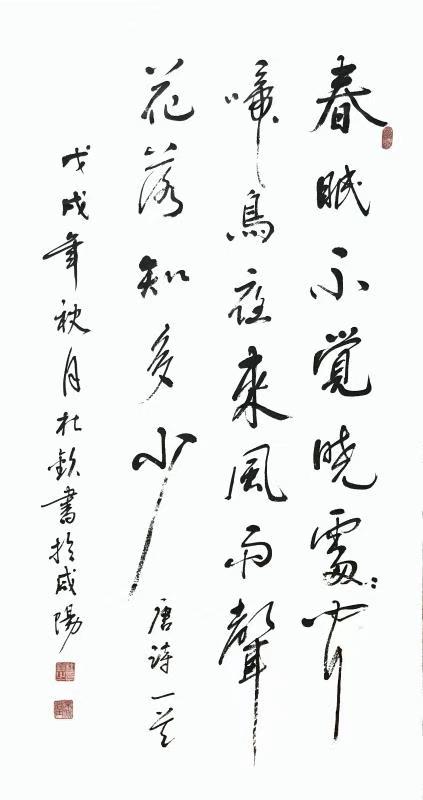 春眠不覺曉處々聞
啼鳥夜來風雨聲
花落知多少
唐詩一首
戊戌年秋月杜欽書於咸陽